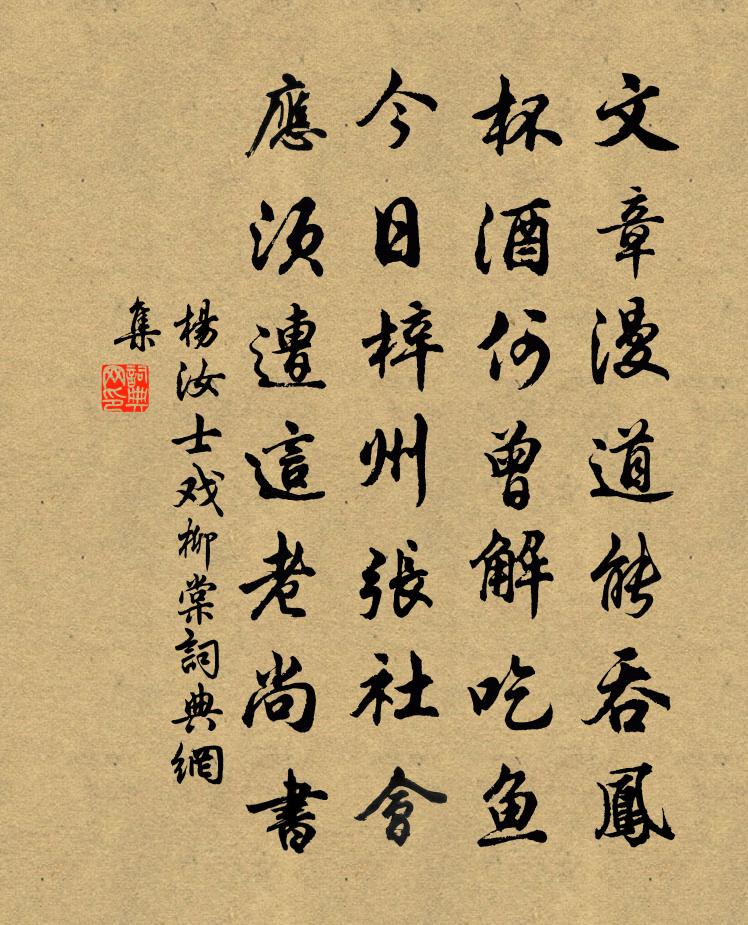 文章漫道能吞鳳
杯酒何曾解吃鱼
今日梓州張社會
應須遭這老尚書
楊汝士戏柳棠詞典網
集
詞典
网印